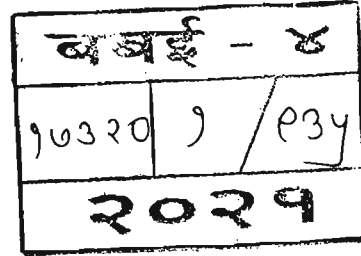 बबई - ४
१७३२० १ / ९३५
२०२१